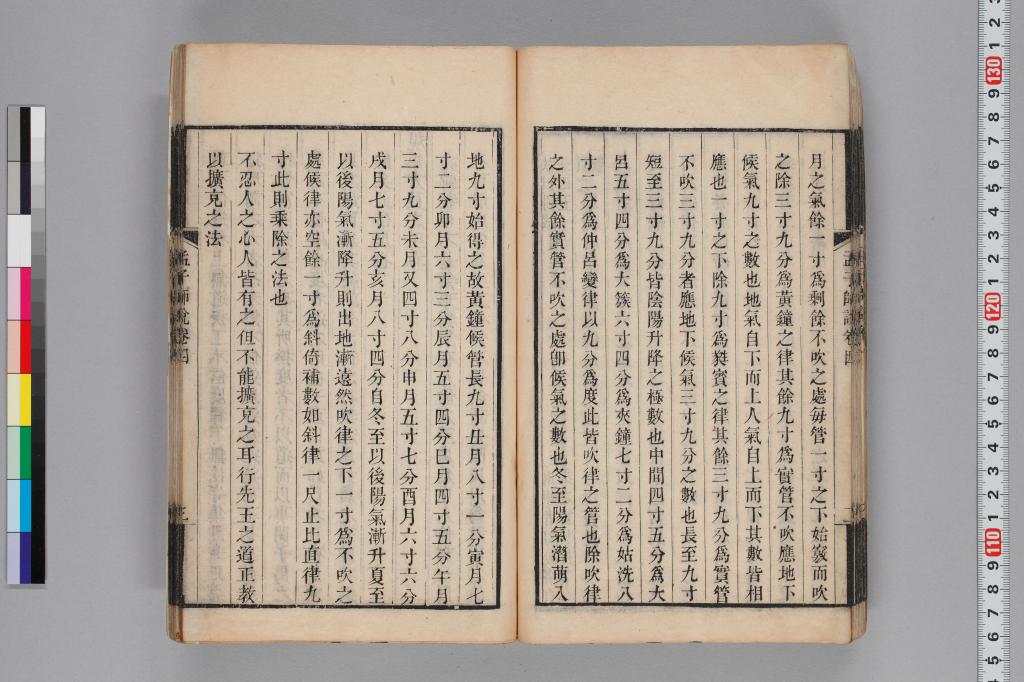 月之氣餘一寸爲剩餘不吹之處每管一寸之下始竅而吹
之除三寸九分爲黃鐘之律其餘九寸爲實管不吹應地下
候氣九寸之數也地氣自下而上人氣自上而下其數皆相
應也一寸之下除九寸爲蕤賓之律其餘三寸九分爲實管
不吹三寸九分者應地下候氣三寸九分之數也長至九寸
短至三寸九分皆陰陽升降之極數也中間四寸五分爲大
呂五寸四分爲大簇六寸四分爲夾鐘七寸二分爲姑洗八
寸二分爲仲呂變律以九分爲度此皆吹律之管也除吹律
之外其餘實管不吹之處卽候氣之數也冬至陽氣潛萌入
地九寸始得之故黃鐘候管長九寸丑月八寸一分寅月七
寸二分卯月六寸三分辰月五寸四分巳月四寸五分午月
三寸九分未月又四寸八分申月五寸七分酉月六寸六分
戌月七寸五分亥月八寸四分自冬至以後陽氣漸升夏至
以後陽氣漸降升則出地漸遠然吹律之下一寸爲不吹之
處候律亦空餘一寸爲斜倚補數如斜律一尺止比直律九
寸此則乘除之法也
不忍人之心人皆有之但不能擴充之耳行先王之道正教
以擴充之法
孟子師說卷四